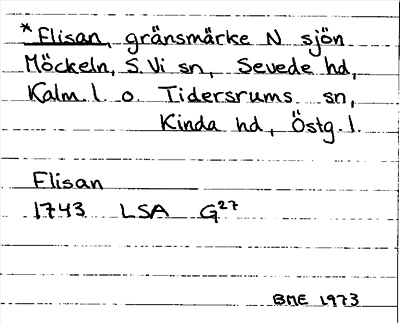 *Flisan, gränsmärke N sjön
Möckeln, S. Vi sn, Sevede hd,
Kalm. l. o. Tidersrums sn,
Kinda hd, Östg. l.
Flisan
1743 LSA G27
BME 1973